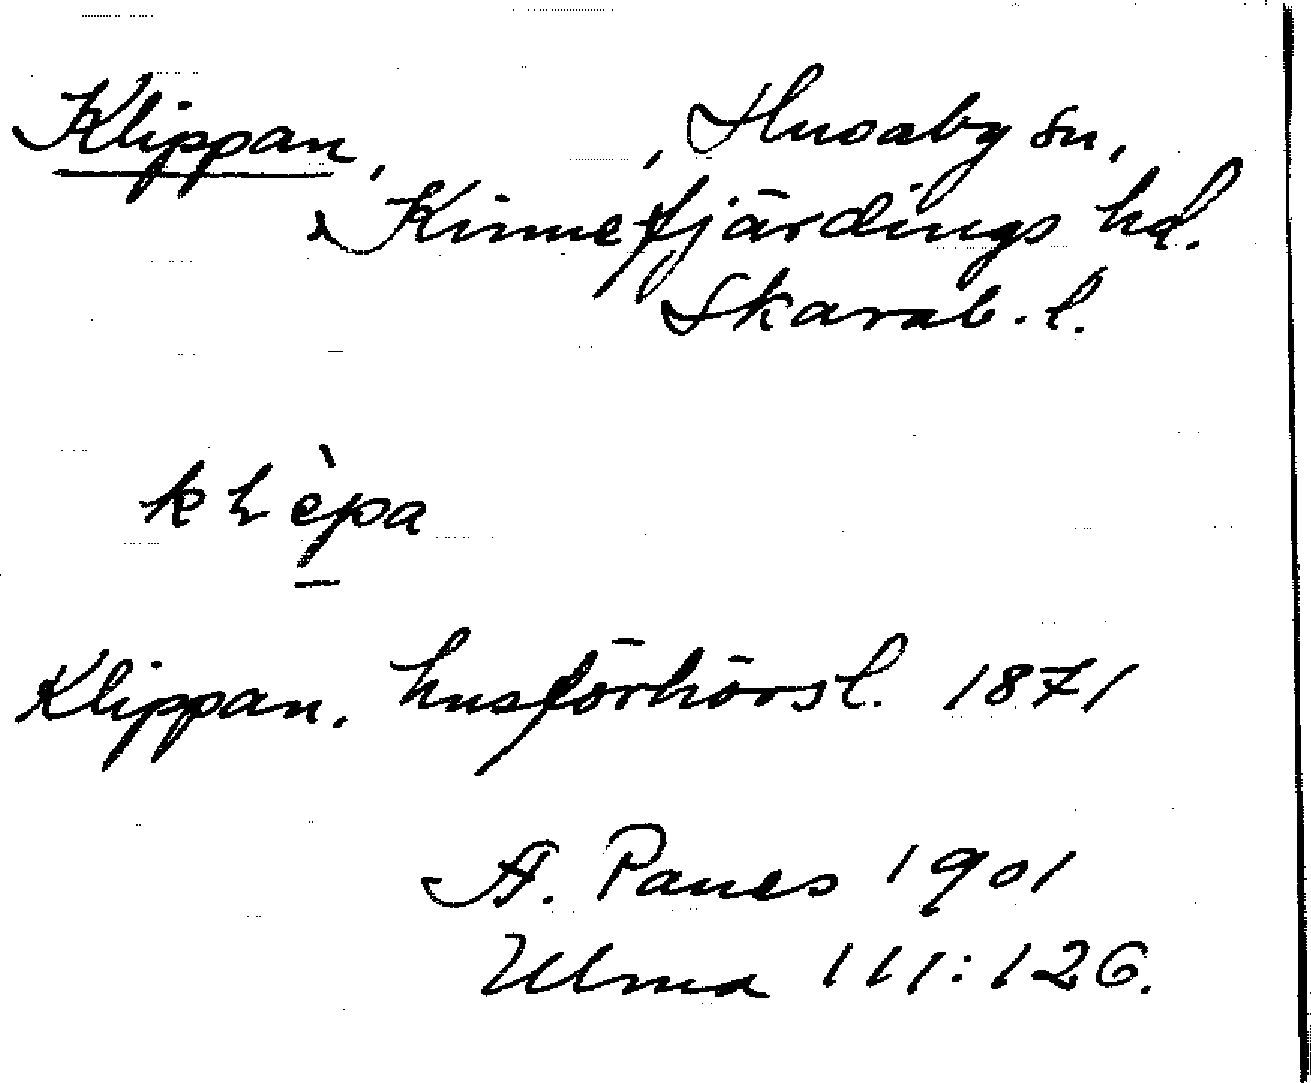 Klippan, , Husaby sn,
Kinnefjärdings hd.
Skarab. l.
kLèpa
Klippan. husförhörsl. 1871
A. Panes 1901
Ulma 111:126.